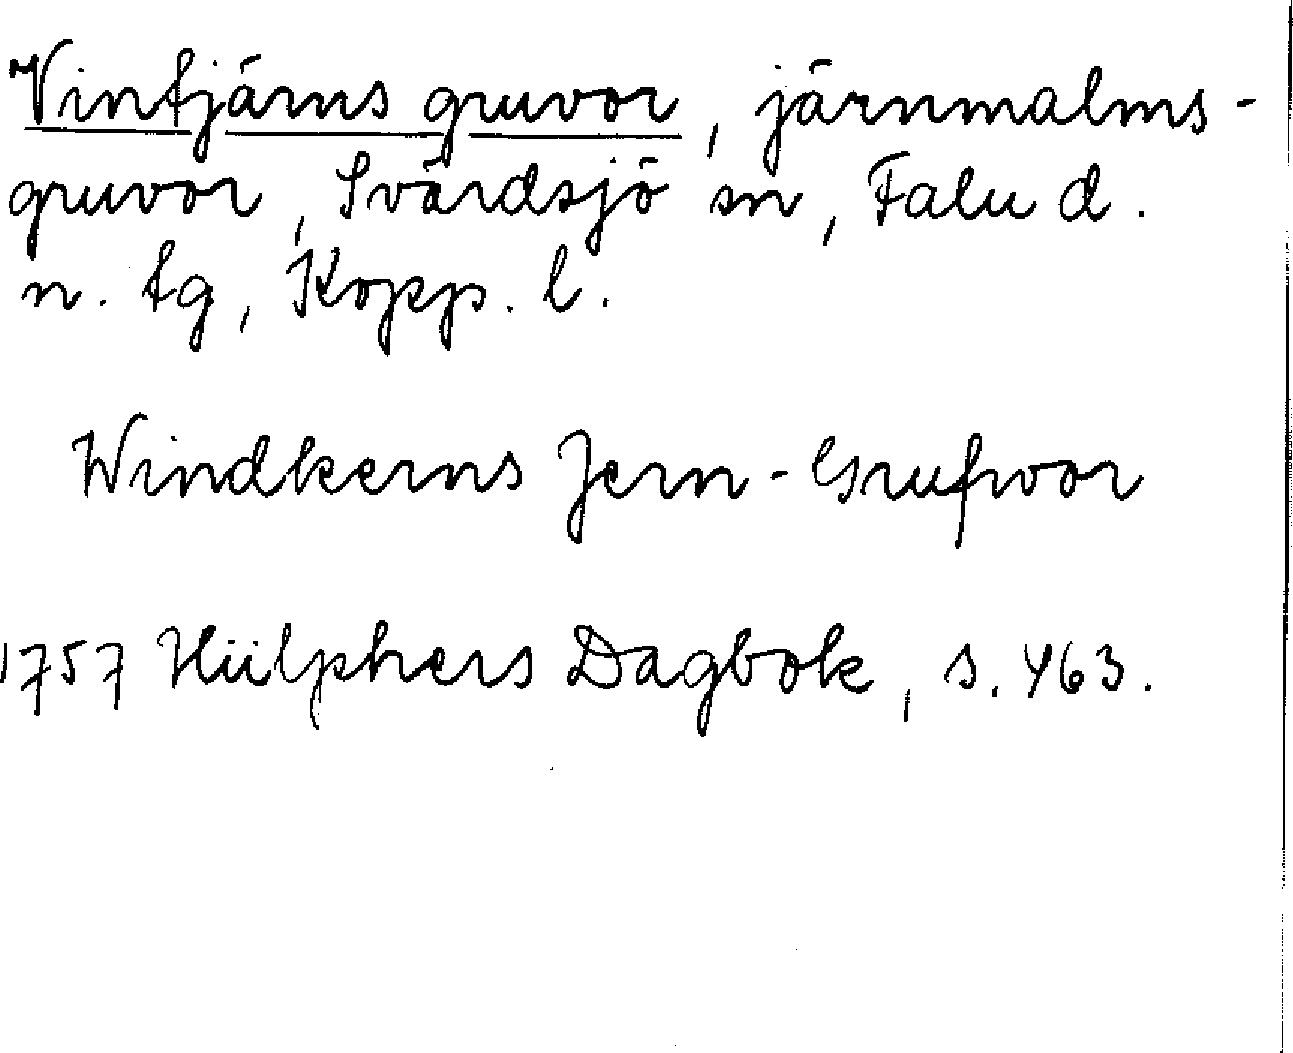 Vintjärns gruvor, järnmalms-
gruvor, Svärdsjö sn, Falu d.
n. tg, Kopp. l.
Windkerns Jern-Grufwor
1757 Hülphers Dagbok, s. 463.